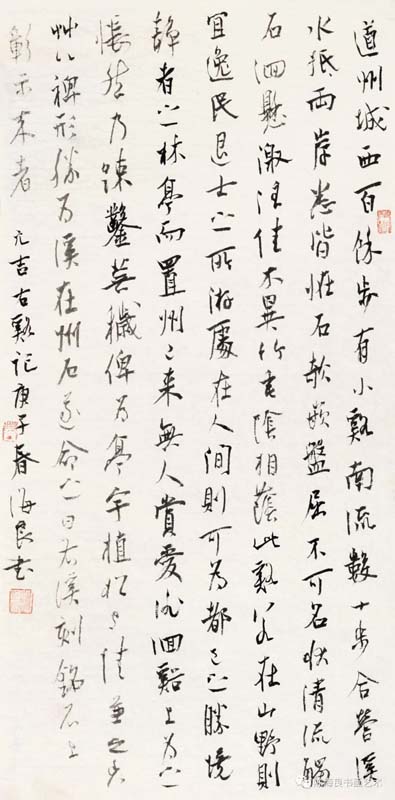 道州城西百餘步有小谿南流數十步合營溪
水抵兩岸悉皆怪石欹嵌盤屈不可名狀清流觸
石洄懸激注佳木異竹垂陰相蔭此谿若在山野則
宜逸民退士之所游處在人間則可為都邑之勝境
靜者之林亭而置州已來無人賞愛徘徊谿上為之
悵然乃疎鑿蕪穢俾為亭宇植松與桂兼之香
艸以裨形勝為溪在州右遂命之曰右溪刻銘石上
彰示來者 元吉右谿記庚子春海良書
海良书画艺术